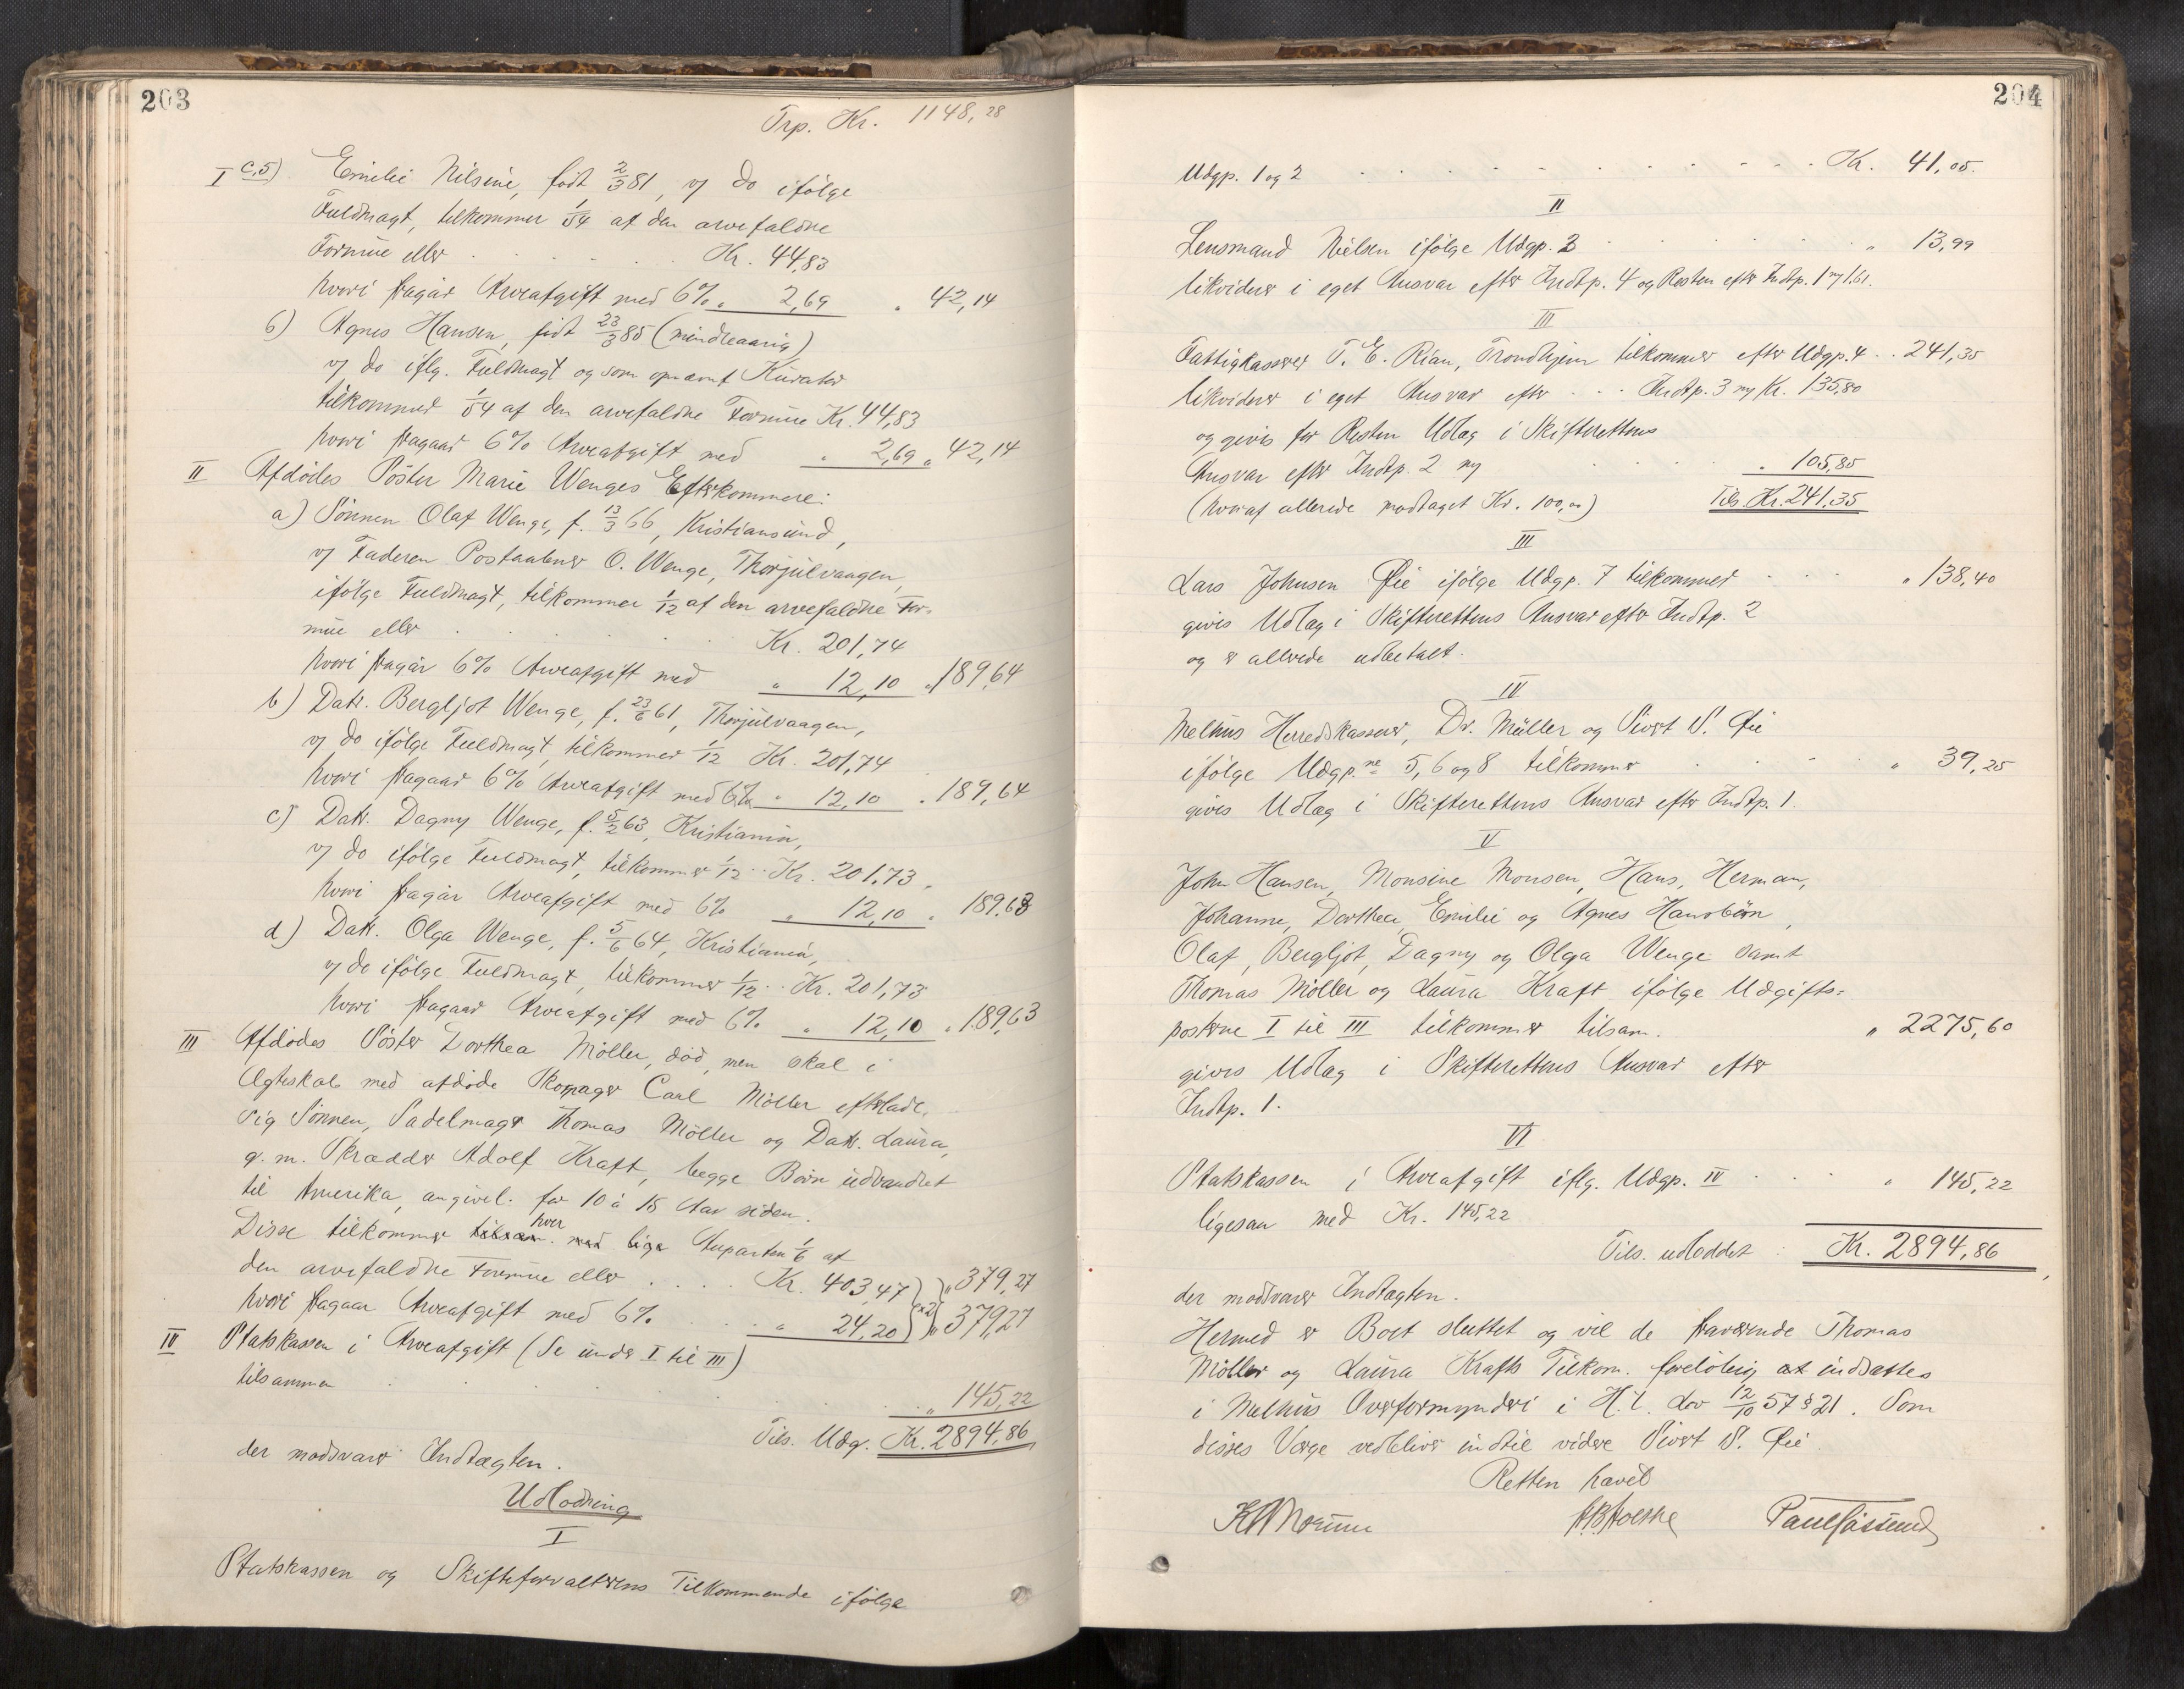 203
Trp. Kr. 1148,28
I c,5) Emilie Nilsine, født 2/3 81, v/ do ifølge
Fuldmagt, tilkommer 1/54 af den arvefaldne
Formue eller . . . . . . Kr. 44,83
hvori fragår Arveafgift med 6% „ 2,69 „ 42,14
6) Agnes Hansen, født 23/3 85 (mindreaarig)
v/ do iflg. Fuldmagt og som opnævnt Kurator
tilkommer 1/54 af den arvefaldne Formue Kr. 44,83
hvori fragaar 6% Arveafgift med „ 2,69 „ 42,14
II Afdødes Søster Marie Wenges Efterkommere:
a) Sønnen Olaf Wenge, f. 13/3 66, Kristiansund,
v/ Faderen Postaabner O. Wenge, Thorjulvaagen,
ifølge Fuldmagt, tilkommer 1/12 af den arvefaldne For-
mue eller . . . . . . Kr. 201,74
hvori fragår 6% Arveafgift med „ 12,10 „ 189,64
b) Datr. Bergljot Wenge, f. 23/6 61, Thorjulvaagen,
v/ do ifølge Fuldmagt, tilkommer 1/12 Kr. 201,74
hvori fragaar 6% Arveafgift med 6% „ 12,10 „ 189,64
c) Datr. Dagny Wenge, f. 5/2 63, Kristiania,
v/ do ifølge Fuldmagt, tilkommer 1/12 .. Kr. 201,73
hvori fragår Arveafgift med 6% „ 12,10 „ 189,63
d) Datr. Olga Wenge, f. 5/6 64, Kristiania,
v/ do ifølge Fuldmagt, tilkommer 1/12 .. Kr. 201,73
hvori fragaar Arveafgift med 6% „ 12,10 „ 189,63
III Afdødes Søster Dorthea Möller, død, men skal i
Ægteskab med afdøde Skomager Carl Möller efterlade
sig Sønnen, Sadelmager Thomas Möller og Datr. Laura,
g. m. Skrædder Adolf Kraft, begge Børn udvandret
til Amerika, angivel. for 10 à 15 Aar siden.
Disse tilkommer tilsam. hver med lige Anparten 1/6 af
den arvefaldne Formue eller . . . . Kr. 403,47 } „ 379,27
hvori fragaar Arveafgift med 6% . . . „ 24,20 } x2 { „ 379,27
IV Statskassen i Arveafgift (Se under I til III)
tilsammen . . . . . . „ 145,22
Tils. Udg. Kr. 2894,86
der modsvarer Indtægten.
Udlodning
I
Statskassen og Skifteforvalterens Tilkommende ifølge
204
Udgp. 1 og 2 . . . . . . . . . . Kr. 41,05.
II
Lensmand Nielsen ifølge Udgp. 3 . . . . . „ 13,99
likviderer i eget Ansvar efter Indtp. 4 og Resten efter Indtp. 1 m/ 1.61.
III
Fattigkasserer T. E. Rian, Trondhjem tilkommer efter Udgp. 4 .. 241,35
likviderer i eget Ansvar efter . . . Indtp. 3 m/ Kr. 135,80
og givis for Resten Udlæg i Skifterettens
Ansvar efter Indtp. 2 m/ . . . . „ 105,85
(hvoraf allerede modtaget Kr. 100,00) Tils. Kr. 241,35
III
Lars Johnsen Øie ifølge Udgp. 7 tilkommer . . . „ 138,40
givis Udlæg i Skifterettens Ansvar efter Indtp. 2
og er allerede udbetalt.
IV
Melhus Herredskasserer, Dr. Müller og Sivert S. Øie
ifølge Udgp.ne 5, 6 og 8 tilkommer . . . . „ 39,25
givis Udlæg i Skifterettens Ansvar efter Indtp. 1.
V
John Hansen, Monsine Monsen, Hans, Herman,
Johanne, Dorthea, Emilie og Agnes Hansbørn,
Olaf, Bergljot, Dagny og Olga Wenge samt
Thomas Möller og Laura Kraft ifølge Udgifts-
posterne I til III tilkommer tilsam. „ 2275,60
givis Udlæg i Skifterettens Ansvar efter
Indtp. 1.
VI
Statskassen i Arveafgift iflg. Udgp. IV . . . „ 145,22
ligesaa med Kr. 145,22
Tils. udloddet : Kr. 2894,86
der modsvarer Indtægten.
Hermed er Boet sluttet og vil de fraværende Thomas
Möller og Laura Krafts Tilkom. foreløbig at indsættes
i Melhus Overformynderi i H. t. Lov 12/10 57 § 21. Som
disses Værge vedbliver indtil videre Sivert S. Øie
Retten hævet